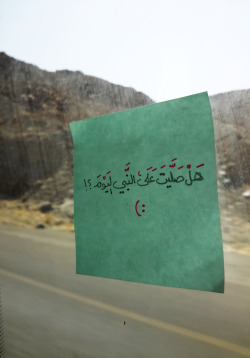 هَلْ صَلَّيتَ عَلَى النَّبِي اليَوْمَ ؟!
(: